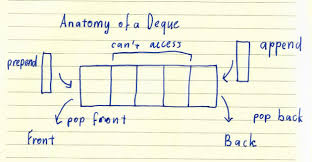 Anatomy of a Deque
can't access
prepend
append
pop front
pop back
Front
Back